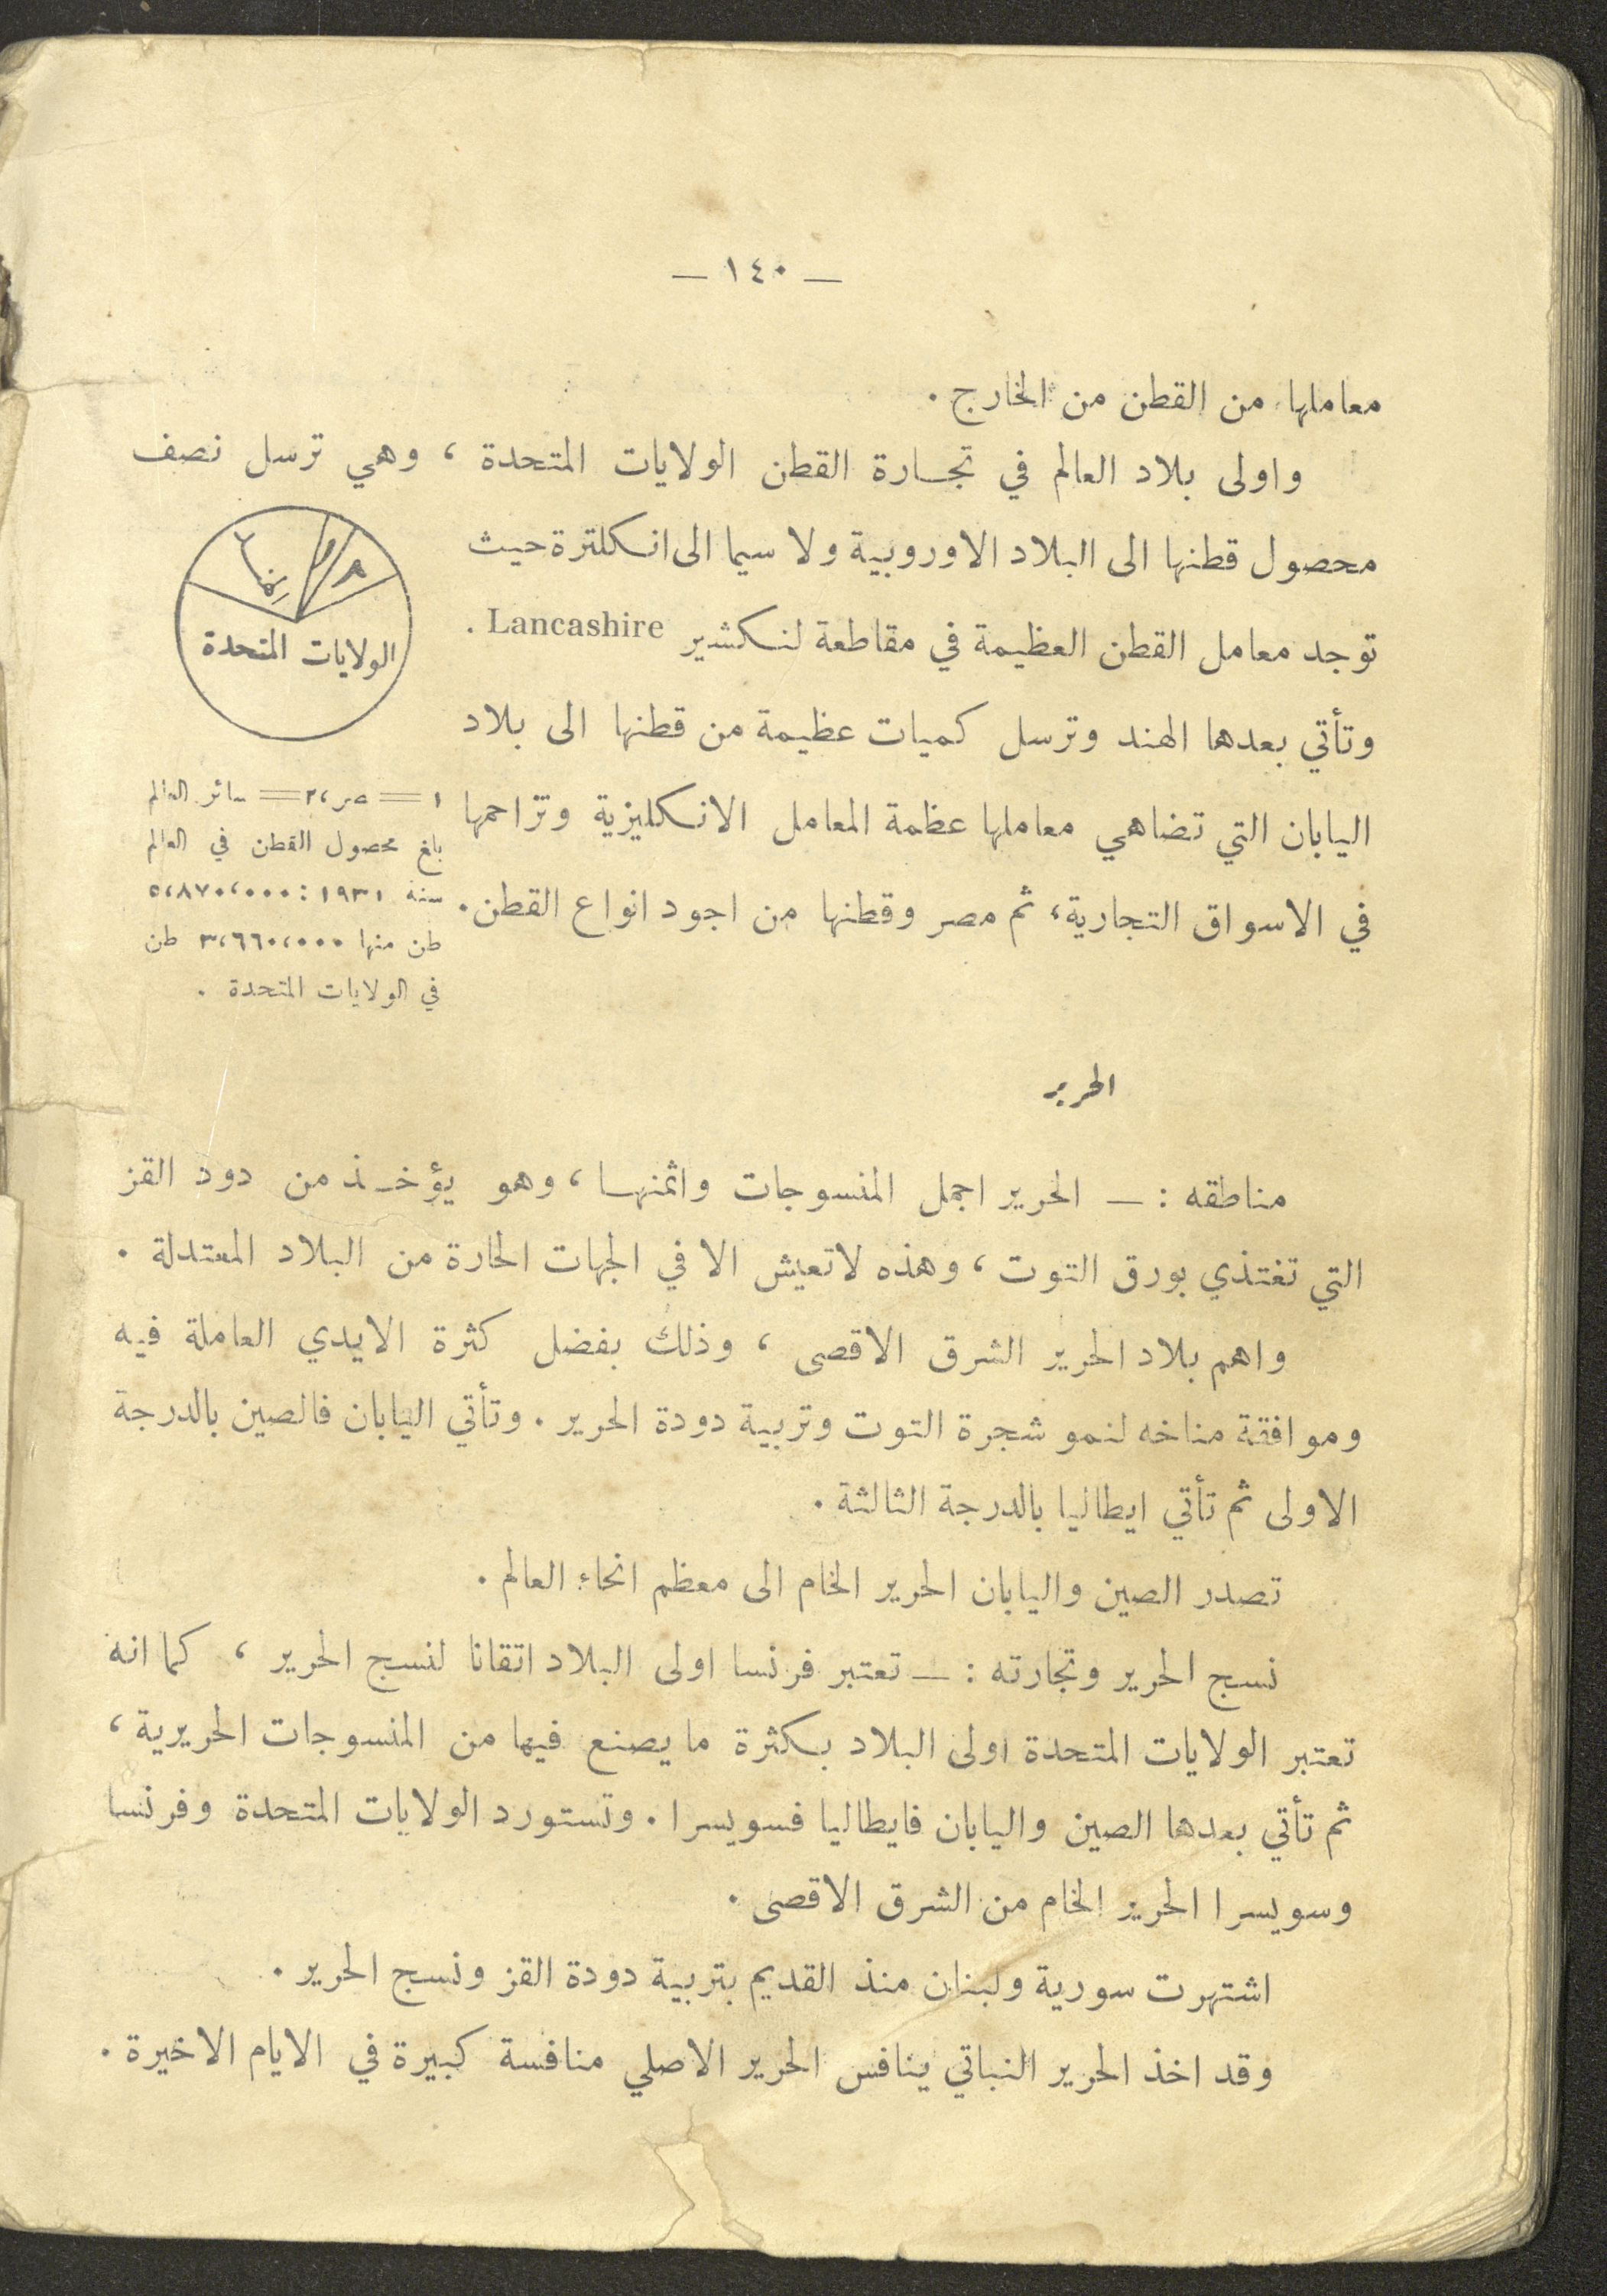 — ١٤٠ —
معاملها من القطن من الخارج .
واولى بلاد العالم في تجارة القطن الولايات المتحدة ، وهي ترسل نصف
محصول قطنها الى البلاد الاوروبية ولا سيما الى انكلترة حيث
توجد معامل القطن العظيمة في مقاطعة لنكشير Lancashire .
وتأتي بعدها الهند وترسل كميات عظيمة من قطنها الى بلاد
اليابان التي تضاهي معاملها عظمة المعامل الانكليزية وتزاحمها
في الاسواق التجارية ، ثم مصر وقطنها من اجود انواع القطن .
الولايات المتحدة
سائر العالم
بلغ محصول القطن في العالم
سنة ١٩٣١ : ٥،٨٧٠،٠٠٠
طن منها ٣،٦٦٠،٠٠٠ طن
في الولايات المتحدة .
الحرير
مناطقه : — الحرير اجمل المنسوجات واثمنها ، وهو يؤخذ من دود القز
التي تغتذي بورق التوت ، وهذه لاتعيش الا في الجهات الحارة من البلاد المعتدلة .
واهم بلاد الحرير الشرق الاقصى ، وذلك بفضل كثرة الايدي العاملة فيه
وموافقة مناخه لنمو شجرة التوت وتربية دودة الحرير . وتأتي اليابان فالصين بالدرجة
الاولى ثم تأتي ايطاليا بالدرجة الثالثة .
تصدر الصين واليابان الحرير الخام الى معظم انحاء العالم .
نسج الحرير وتجارته : — تعتبر فرنسا اولى البلاد اتقانا لنسج الحرير ، كما انه
تعتبر الولايات المتحدة اولى البلاد بكثرة ما يصنع فيها من المنسوجات الحريرية ،
ثم تأتي بعدها الصين واليابان فايطاليا فسويسرا . وتستورد الولايات المتحدة وفرنسا
وسويسرا الحرير الخام من الشرق الاقصى .
اشتهرت سورية ولبنان منذ القديم بتربية دودة القز ونسج الحرير .
وقد اخذ الحرير النباتي ينافس الحرير الاصلي منافسة كبيرة في الايام الاخيرة .